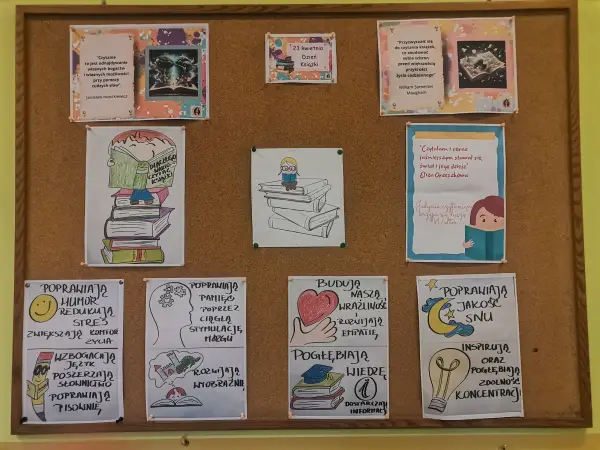 "Czytanie
to jest odnajdywanie
własnych bogactw
i własnych możliwości
przy pomocy
cudzych słów".
Jarosław Iwaszkiewicz
23 kwietnia
Dzień
Książki
"Przyzwyczaić się
do czytania książek,
to zbudować
sobie schron
przed większością
przykrości
życia codziennego"
William Somerset
Maugham
DLACZEGO
WARTO
CZYTAĆ
KSIĄŻKI
"Czytałam i coraz
jaśniejszym stawał się
świat i jego dzieje"
Eliza Orzeszkowa
POPRAWIAJĄ
HUMOR
REDUKUJĄ
STRES
ZWIĘKSZAJĄ KOMFORT
ŻYCIA
WZBOGACAJĄ
JĘZYK
POSZERZAJĄ
SŁOWNICTWO
POPRAWIAJĄ
PISOWNIĘ
POPRAWIAJĄ
PAMIĘĆ
POPRZEZ
CIĄGŁĄ
STYMULACJĘ
MÓZGU
ROZWIJAJĄ
WYOBRAŹNIĘ
BUDUJĄ
NASZĄ
WRAŻLIWOŚĆ
I
ROZWIJAJĄ
EMPATIĘ
POGŁĘBIAJĄ
WIEDZĘ
I
DOSTARCZAJĄ
INFORMACJI
POPRAWIAJĄ
JAKOŚĆ
SNU
INSPIRUJĄ
ORAZ
POGŁĘBIAJĄ
ZDOLNOŚĆ
KONCENTRACJI